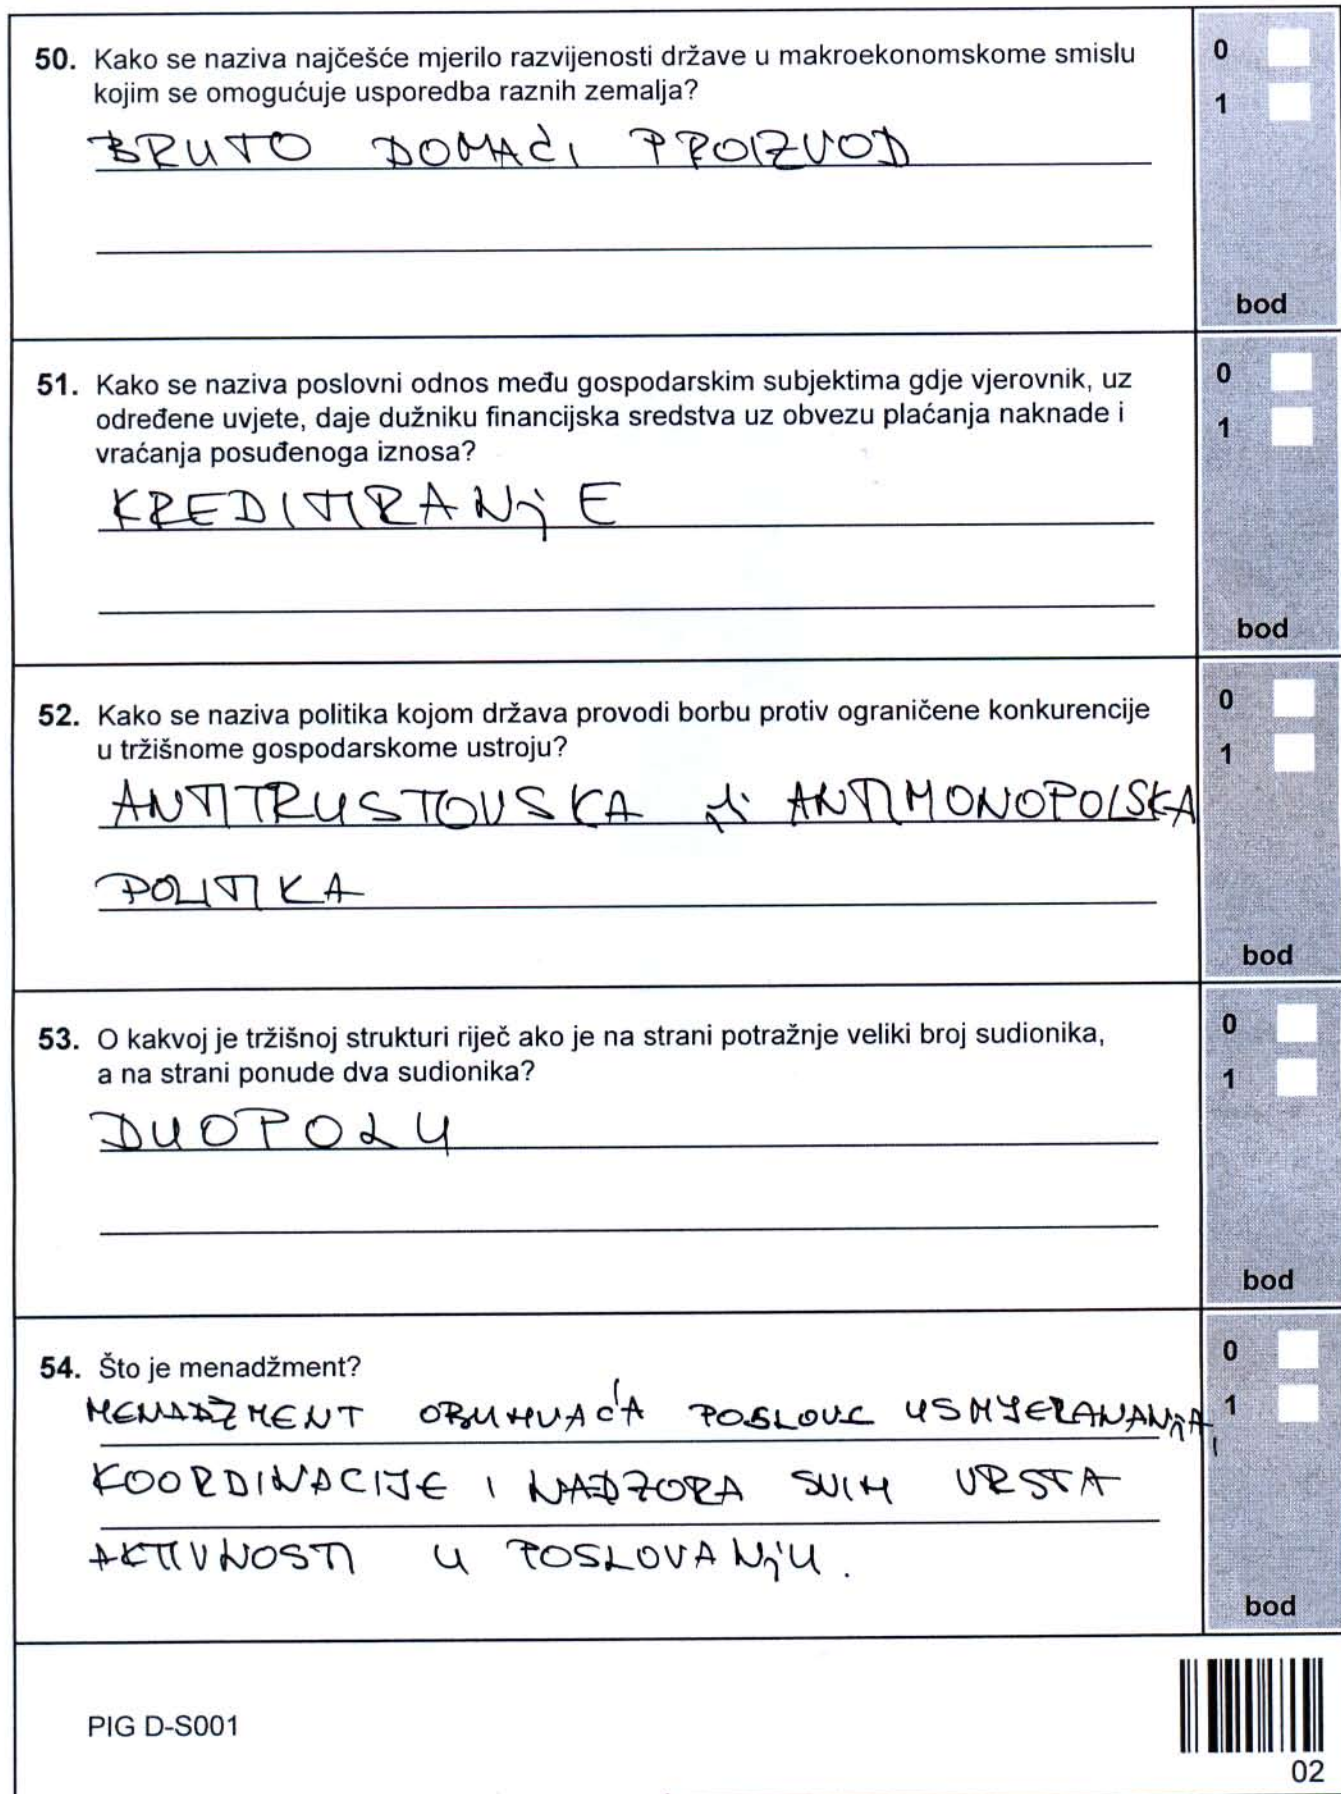 50. Kako se naziva najčešće mjerilo razvijenosti države u makroekonomskome smislu
kojim se omogućuje usporedba raznih zemalja?
BRUTO DOMAĆI PROIZVOD
0
1
bod
51. Kako se naziva poslovni odnos među gospodarskim subjektima gdje vjerovnik, uz
određene uvjete, daje dužniku financijska sredstva uz obvezu plaćanja naknade i
vraćanja posuđenoga iznosa?
KREDITIRANjE
0
1
bod
52. Kako se naziva politika kojom država provodi borbu protiv ograničene konkurencije
u tržišnome gospodarskome ustroju?
ANTITRUSTOVSKA ili ANTIMONOPOLSKA
POLITIKA
0
1
bod
53. O kakvoj je tržišnoj strukturi riječ ako je na strani potražnje veliki broj sudionika,
a na strani ponude dva sudionika?
DUOPOLU
0
1
bod
54. Što je menadžment?
MENADŽMENT OBUHVAĆA POSLOVE USMJERANANjA,
KOORDINACIJE I NADZORA SVIH VRSTA
AKTIVNOSTI U POSLOVANjU.
0
1
bod
PIG D-S001
02